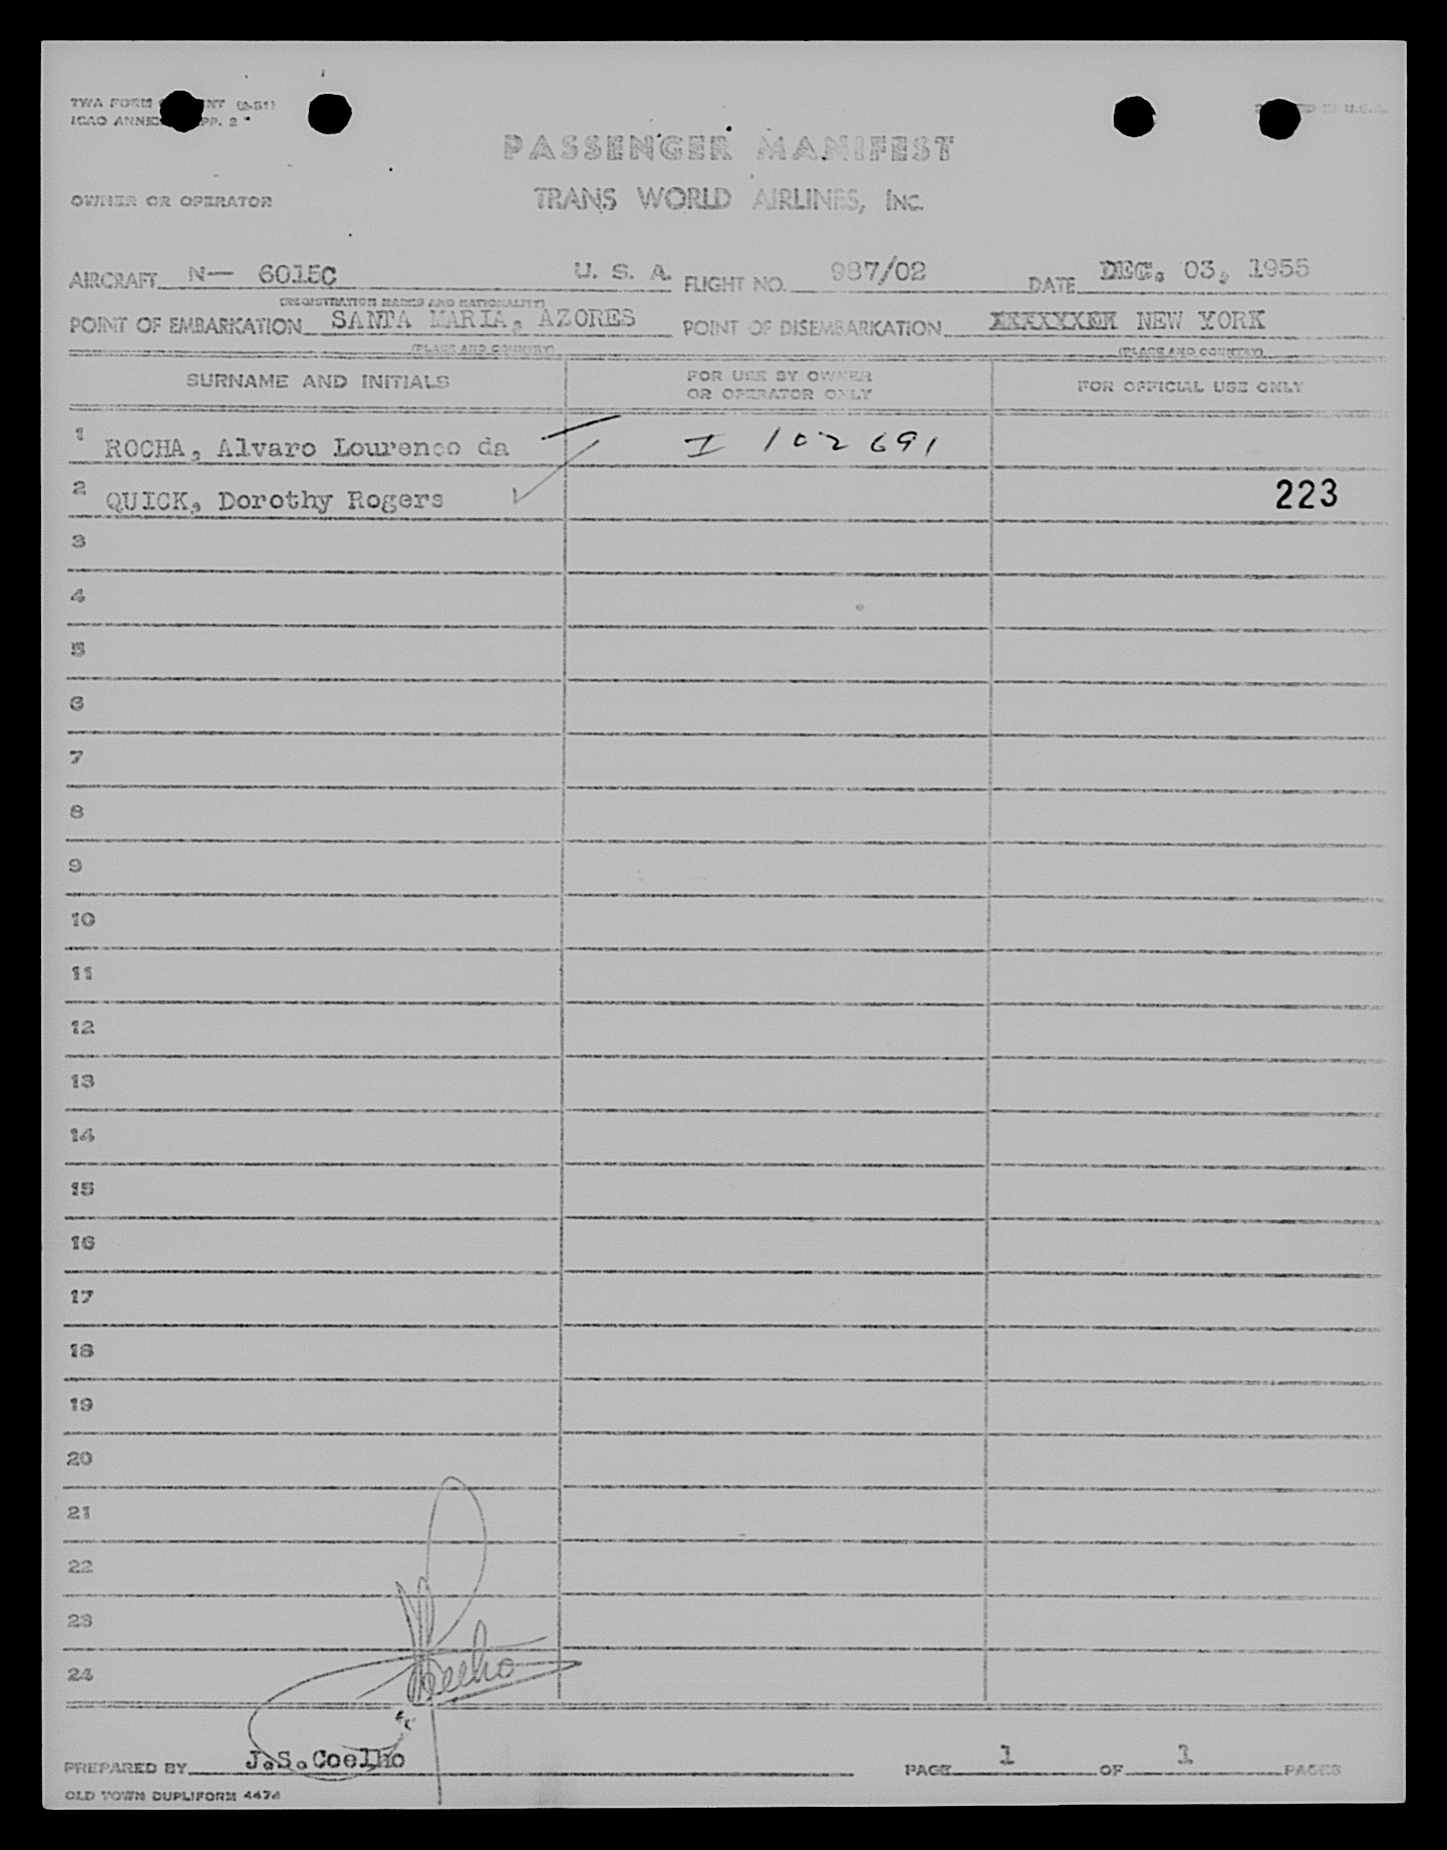 TWA FORM NT (2-51)
ICAO ANNEX PP. 2
U.S.A.
PASSENGER MANIFEST
OWNER OR OPERATOR
TRANS WORLD AIRLINES, INC.
AIRCRAFT N— 6015C U. S. A. FLIGHT NO. 987/02 DATE DEC. 03, 1955
(REGISTRATION MARKS AND NATIONALITY)
POINT OF EMBARKATION SANTA MARIA, AZORES POINT OF DISEMBARKATION NEW YORK
(PLACE AND COUNTRY) (PLACE AND COUNTRY)
SURNAME AND INITIALS FOR USE BY OWNER OR OPERATOR ONLY FOR OFFICIAL USE ONLY
1 ROCHA, Alvaro Lourenco da I 102691
2 QUICK, Dorothy Rogers 223
3
4
5
6
7
8
9
10
11
12
13
14
15
16
17
18
19
20
21
22
23
24
Coelho
PREPARED BY J.S.Coelho PAGE 1 OF 1 PAGES
OLD TOWN DUPLIFORM 4474